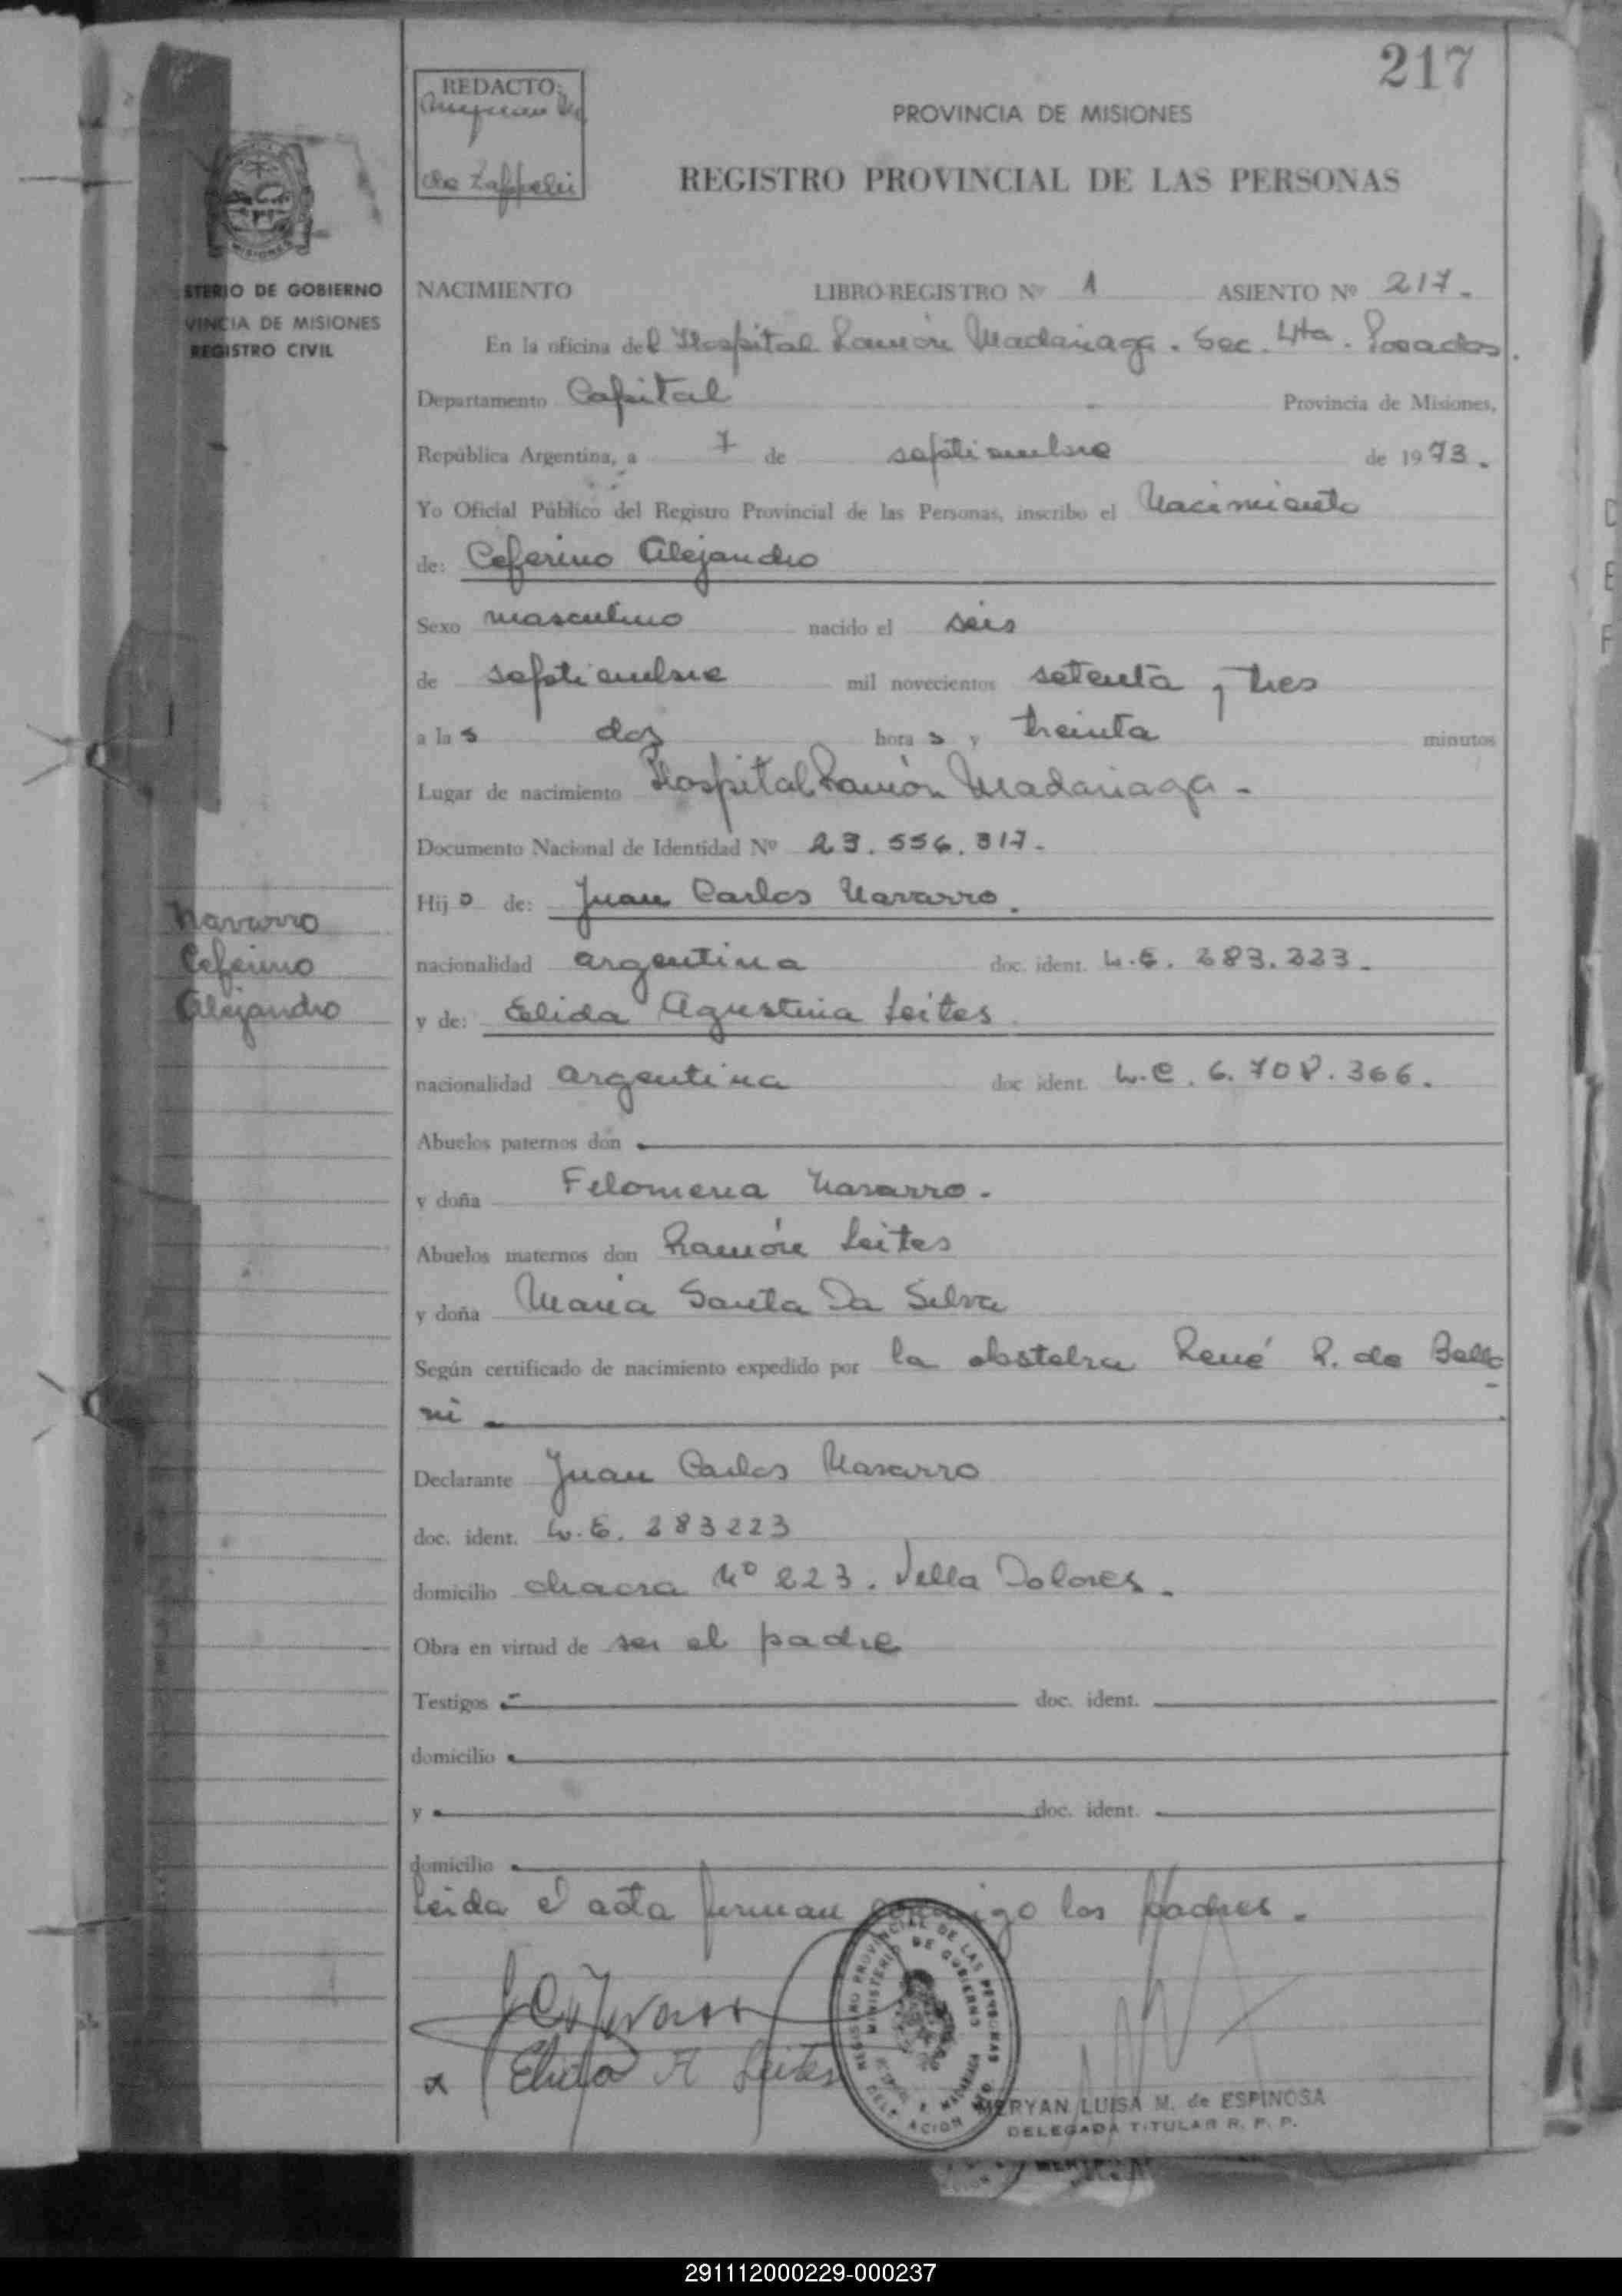 217
REDACTO:
de Zappelli
PROVINCIA DE MISIONES
REGISTRO PROVINCIAL DE LAS PERSONAS
MISIONES
STERIO DE GOBIERNO
VINCIA DE MISIONES
REGISTRO CIVIL
NACIMIENTO LIBRO-REGISTRO Nº 1 ASIENTO Nº 217.
En la oficina del Hospital Ramón Madariaga. Sec. 4ta. Posadas.
Departamento Capital Provincia de Misiones,
República Argentina, a 7 de septiembre de 1973.
Yo Oficial Público del Registro Provincial de las Personas, inscribo el Nacimiento
de: Ceferino Alejandro
Sexo masculino nacido el seis
de septiembre mil novecientos setenta y tres
a las dos horas y treinta minutos
Lugar de nacimiento Hospital Ramón Madariaga -
Documento Nacional de Identidad Nº 23.556.317.
Hijo de: Juan Carlos Navarro.
Navarro
Ceferino
Alejandro
nacionalidad argentina doc. ident. L.E. 283.223.
y de: Elida Agustina Leites
nacionalidad argentina doc ident. L.C. 6.708.366.
Abuelos paternos don
y doña Felomena Navarro.
Abuelos maternos don Ramón Leites
y doña María Santa Da Silva
Según certificado de nacimiento expedido por la obstetra René R. de Bello
ni
Declarante Juan Carlos Navarro
doc. ident. L.E. 283223
domicilio chacra Nº 223. Villa Dolores.
Obra en virtud de ser el padre
Testigos doc. ident.
domicilio
y doc. ident.
domicilio
Leida el acta firman conmigo los padres.
J C Navarro
x Elida A Leites
REGISTRO PROVINCIAL DE LAS PERSONAS
MINISTERIO DE GOBIERNO
DELEGACION
MERYAN LUISA M. de ESPINOSA
DELEGADA TITULAR R. P. P.
291112000229-000237